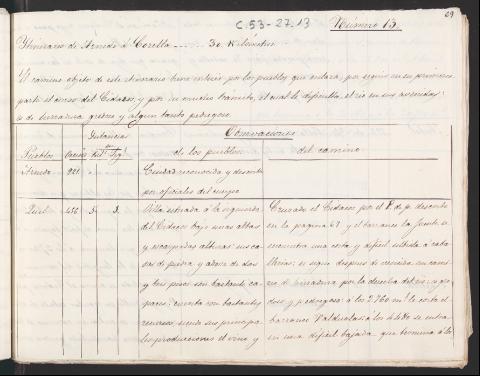 69
C.53-27.13
Número 13.
Ytinerario de Arnedo á Corella ....... 30. Kilómetros
El camino objeto de este itinerario tiene interés por los pueblos que enlaza, por seguir en su primera
parte el curso del Cidacos, y por su mucho tránsito, el cual le dificulta el rio en sus avenidas:
es de herradura y algun tanto pedregoso.
Distancias
Observaciones
Pueblos Vecinos Kil.s Pag.s
de los pueblos
del camino
Arnedo 921 "
Ciudad reconocida y descrita
por oficiales del cuerpo
Quel 456 3 3.
Villa situada á la izquierda
del Cidacos bajo unas altas
y escarpadas alturas: sus ca-
sas de piedra y adove de dos
y tres pisos son bastante ca-
paces: cuenta con bastantes
recursos siendo sus principa-
les producciones el vino y
Cruzado el Cidacos por el P. de p. descrito
en la pagina 67 y el barranco la Fuente se
encuentra una corta y dificil subida á caba-
llerias: se sigue despues de vencida un cami-
no de herradura por la derecha del rio,
doso y pedregoso: á los 2760 m.s le corta el
barranco Valduelas: á los 4480 se entra
en una dificil bajada que termina á los